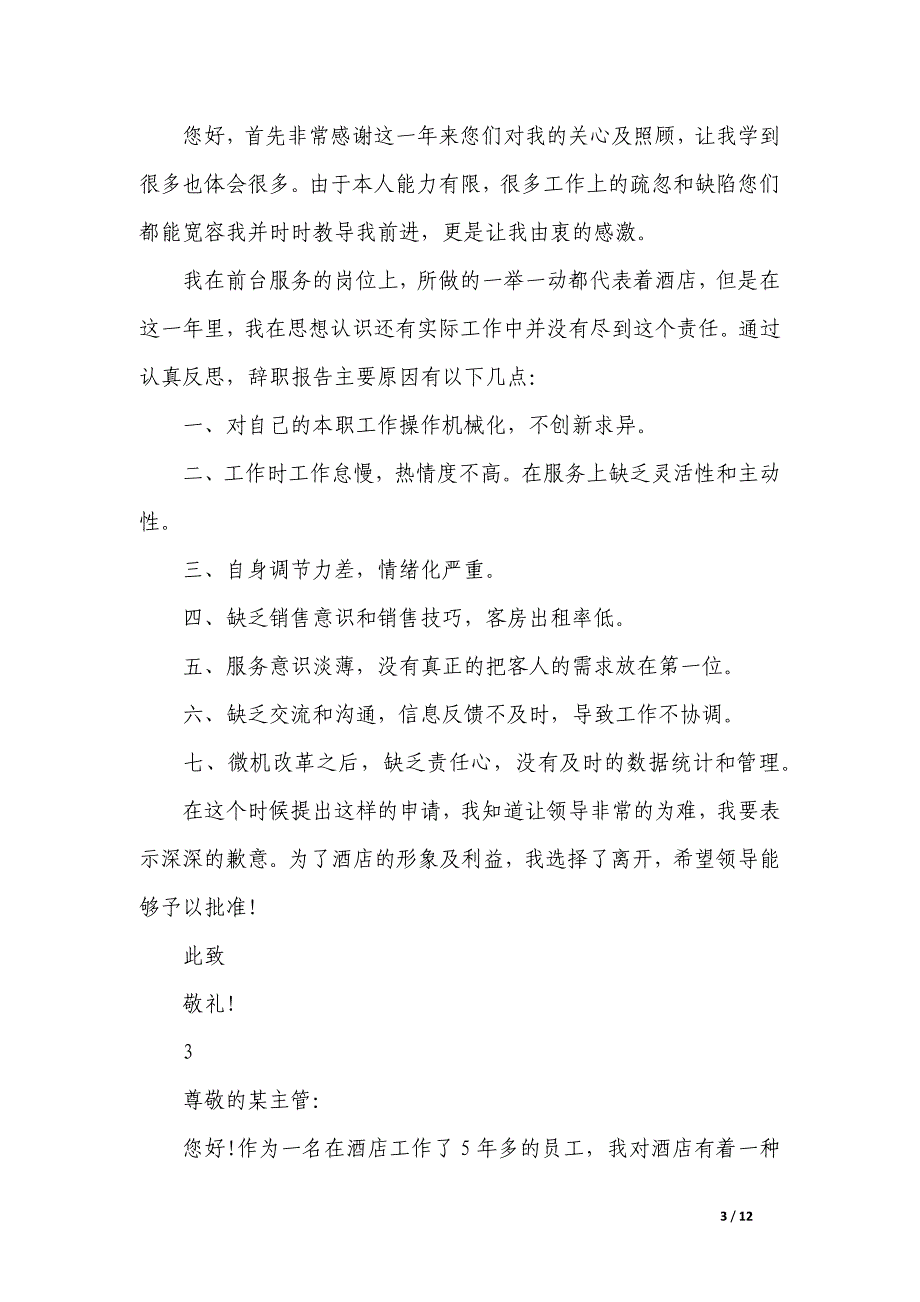 您好，首先非常感谢这一年来您们对我的关心及照顾，让我学到
很多也体会很多。由于本人能力有限，很多工作上的疏忽和缺陷您们
都能宽容我并时时教导我前进，更是让我由衷的感激。
我在前台服务的岗位上，所做的一举一动都代表着酒店，但是在
这一年里，我在思想认识还有实际工作中并没有尽到这个责任。通过
认真反思，辞职报告主要原因有以下几点：
一、对自己的本职工作操作机械化，不创新求异。
二、工作时工作怠慢，热情度不高。在服务上缺乏灵活性和主动
性。
三、自身调节力差，情绪化严重。
四、缺乏销售意识和销售技巧，客房出租率低。
五、服务意识淡薄，没有真正的把客人的需求放在第一位。
六、缺乏交流和沟通，信息反馈不及时，导致工作不协调。
七、微机改革之后，缺乏责任心，没有及时的数据统计和管理。
在这个时候提出这样的申请，我知道让领导非常的为难，我要表
示深深的歉意。为了酒店的形象及利益，我选择了离开，希望领导能
够予以批准！
此致
敬礼！
3
尊敬的某主管：
您好！作为一名在酒店工作了 5 年多的员工，我对酒店有着一种
3 / 12